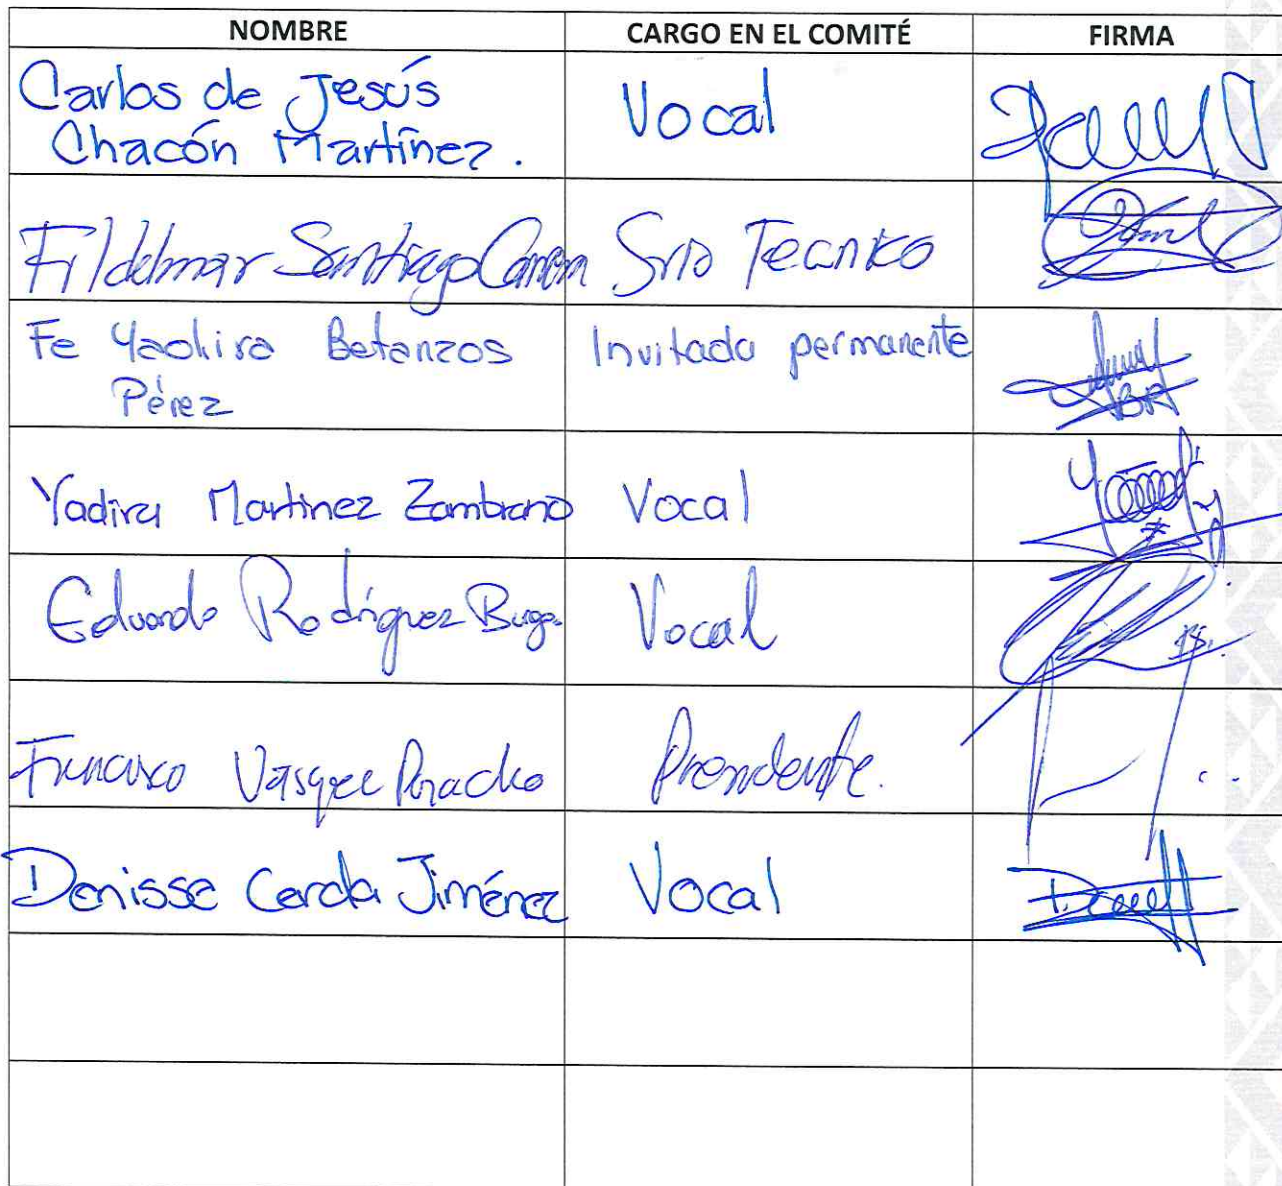 NOMBRE CARGO EN EL COMITÉ FIRMA
Carlos de Jesús Vocal
Chacón Martínez.
Fildelmar Santiago Srio Tecnico
Fe Yachira Betanzos Invitada permanente
Pérez
Yadira Martinez Zambrano Vocal
Eduardo Rodríguez Vocal
Francisco Vásquez Presidente.
Denisse Cerda Jiménez Vocal